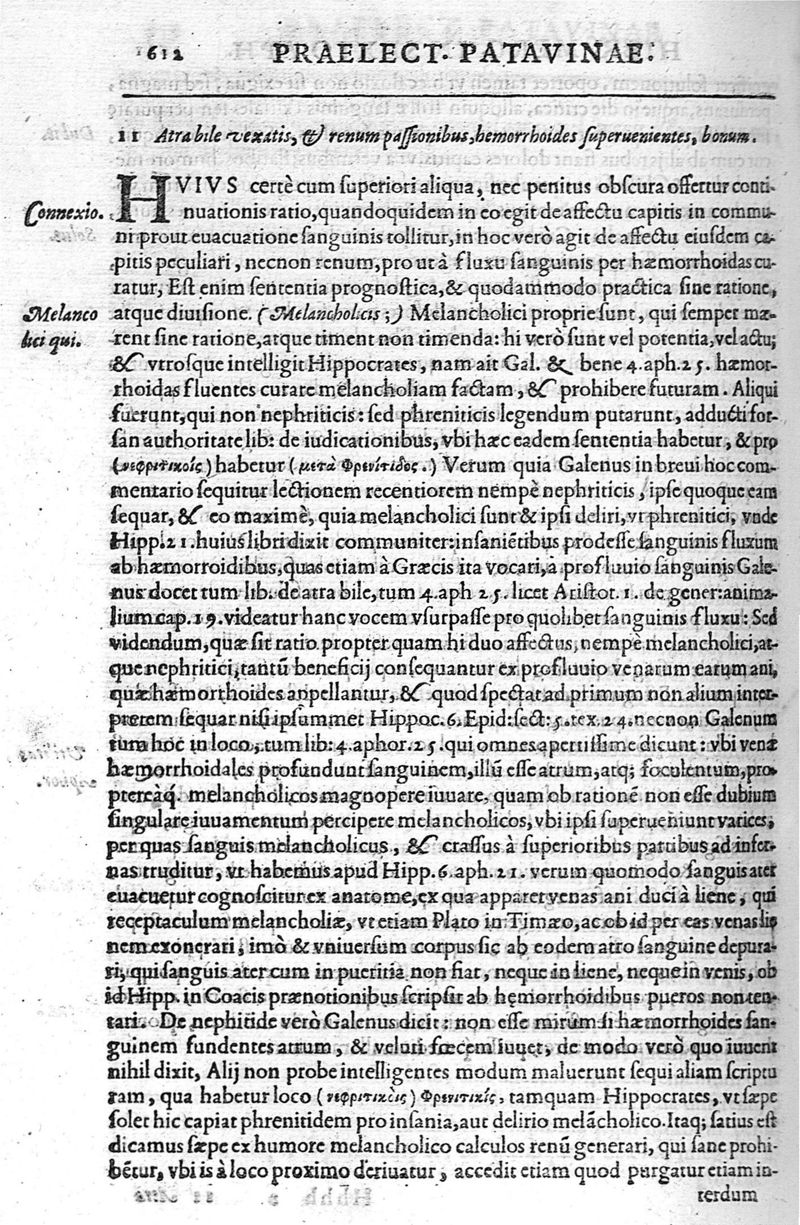 612 PRAELECT. PATAVINAE.
11 Atra bile vexatis, & renum paſſionibus, hemorrhoides ſuperuenientes, bonum.
Connexio.
HVIVS certè cum ſuperiori aliqua, nec penitus obſcura offertur conti-
nuationis ratio, quandoquidem in eo egit de affectu capitis in commu-
ni prout euacuatione ſanguinis tollitur, in hoc verò agit de affectu eiuſdem ca-
pitis peculiari, necnon renum, pro ut à fluxu ſanguinis per hæmorrhoidas cu-
ratur, Eſt enim ſententia prognoſtica, & quodammodo practica ſine ratione,
Melanco
lici qui.
atque diuiſione. (Melancholicis;) Melancholici proprie ſunt, qui ſemper mæ-
rent ſine ratione, atque timent non timenda: hi verò ſunt vel potentia, vel actu;
& vtroſque intelligit Hippocrates, nam ait Gal. & bene 4. aph. 25. hæmor-
rhoidas fluentes curare melancholiam factam, & prohibere futuram. Aliqui
fuerunt, qui non nephriticis: ſed phreniticis legendum putarunt, adducti for-
ſan authoritate lib: de iudicationibus, vbi hæc eadem ſententia habetur, & pro
(νεφριτικοῖς) habetur (μετὰ Φρενίτιδος.) Verum quia Galenus in breui hoc com-
mentario ſequitur lectionem recentiorem nempè nephriticis, ipſe quoque eam
ſequar, & eo maximè, quia melancholici ſunt & ipſi deliri, vt phrenitici, vnde
Hipp. 21. huius libri dixit communiter: inſaniẽtibus prodeſſe ſanguinis fluxum
ab hæmorroidibus, quas etiam à Græcis ita vocari, a profluuio ſanguinis Gale-
nus docet tum lib. de atra bile, tum 4. aph 25. licet Ariſtot. 1. de gener: anima-
lium cap. 19. videatur hanc vocem vſurpaſſe pro quolibet ſanguinis fluxu: Sed
videndum, quæ ſit ratio propter quam hi duo affectus, nempè melancholici, at-
que nephritici, tantũ beneficij conſequantur ex profluuio venarum earum ani,
quæ hæmorrhoides appellantur, & quod ſpectat ad primum non alium inter-
prerem ſequar niſi ipſummet Hippoc. 6. Epid: ſect: 5. tex. 24. necnon Galenum
tum hoc in loco, tum lib: 4. aphor. 25. qui omnes apertiſſime dicunt: vbi venæ
hæmorrhoidales profundunt ſanguinem, illũ eſſe atrum, atq; foculentum, pro-
ptereàq. melancholicos magnopere iuuare, quam ob rationẽ non eſſe dubium
ſingulare iuuamentum percipere melancholicos, vbi ipſi ſuperueniunt varices,
per quas ſanguis melancholicus, & craſſus à ſuperioribus partibus ad infer-
nas truditur, vt habemus apud Hipp. 6. aph. 21. verum quomodo ſanguis ater
euacuetur cognoſcitur ex anatome, ex qua apparet venas ani duci à liene, qui
receptaculum melancholiæ, vt etiam Plato in Timæo, ac ob id per eas venas lie
nem exonerari, imò & vniuerſum corpus ſic ab eodem atro ſanguine depura-
ri, qui ſanguis ater cum in pueritia non fiat, neque in liene, neque in venis, ob
id Hipp. in Coacis prænotionibus ſcripſit ab hęmorrhoidibus pueros non ten-
tari. De nephitide verò Galenus dicit: non eſſe mirum ſi hæmorrhoides ſan-
guinem fundentes atrum, & veluti fœcem iuuet, de modo verò quo iuuent
nihil dixit, Alij non probe intelligentes modum maluerunt ſequi aliam ſcriptu
ram, qua habetur loco (νεφριτικοῖς) Φρενιτικοῖς, tamquam Hippocrates, vt ſæpe
ſolet hic capiat phrenitidem pro inſania, aut delirio melãcholico. Itaq; ſatius eſt
dicamus ſæpe ex humore melancholico calculos renũ generari, qui ſane prohi-
bẽtur, vbi is à loco proximo deriuatur, accedit etiam quod purgatur etiam in-
terdum